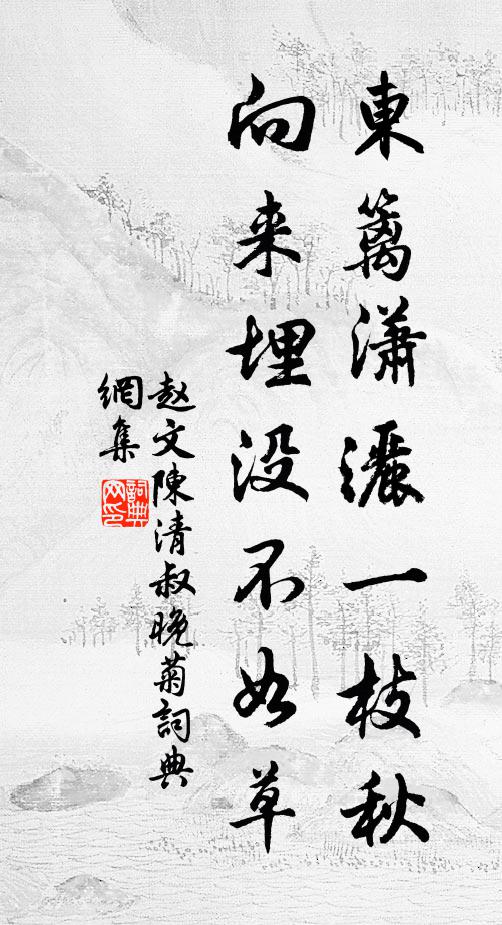 東籬瀟灑一枝秋
向来埋没不如草
赵文陳清叔晚菊詞典
網集
詞典网印